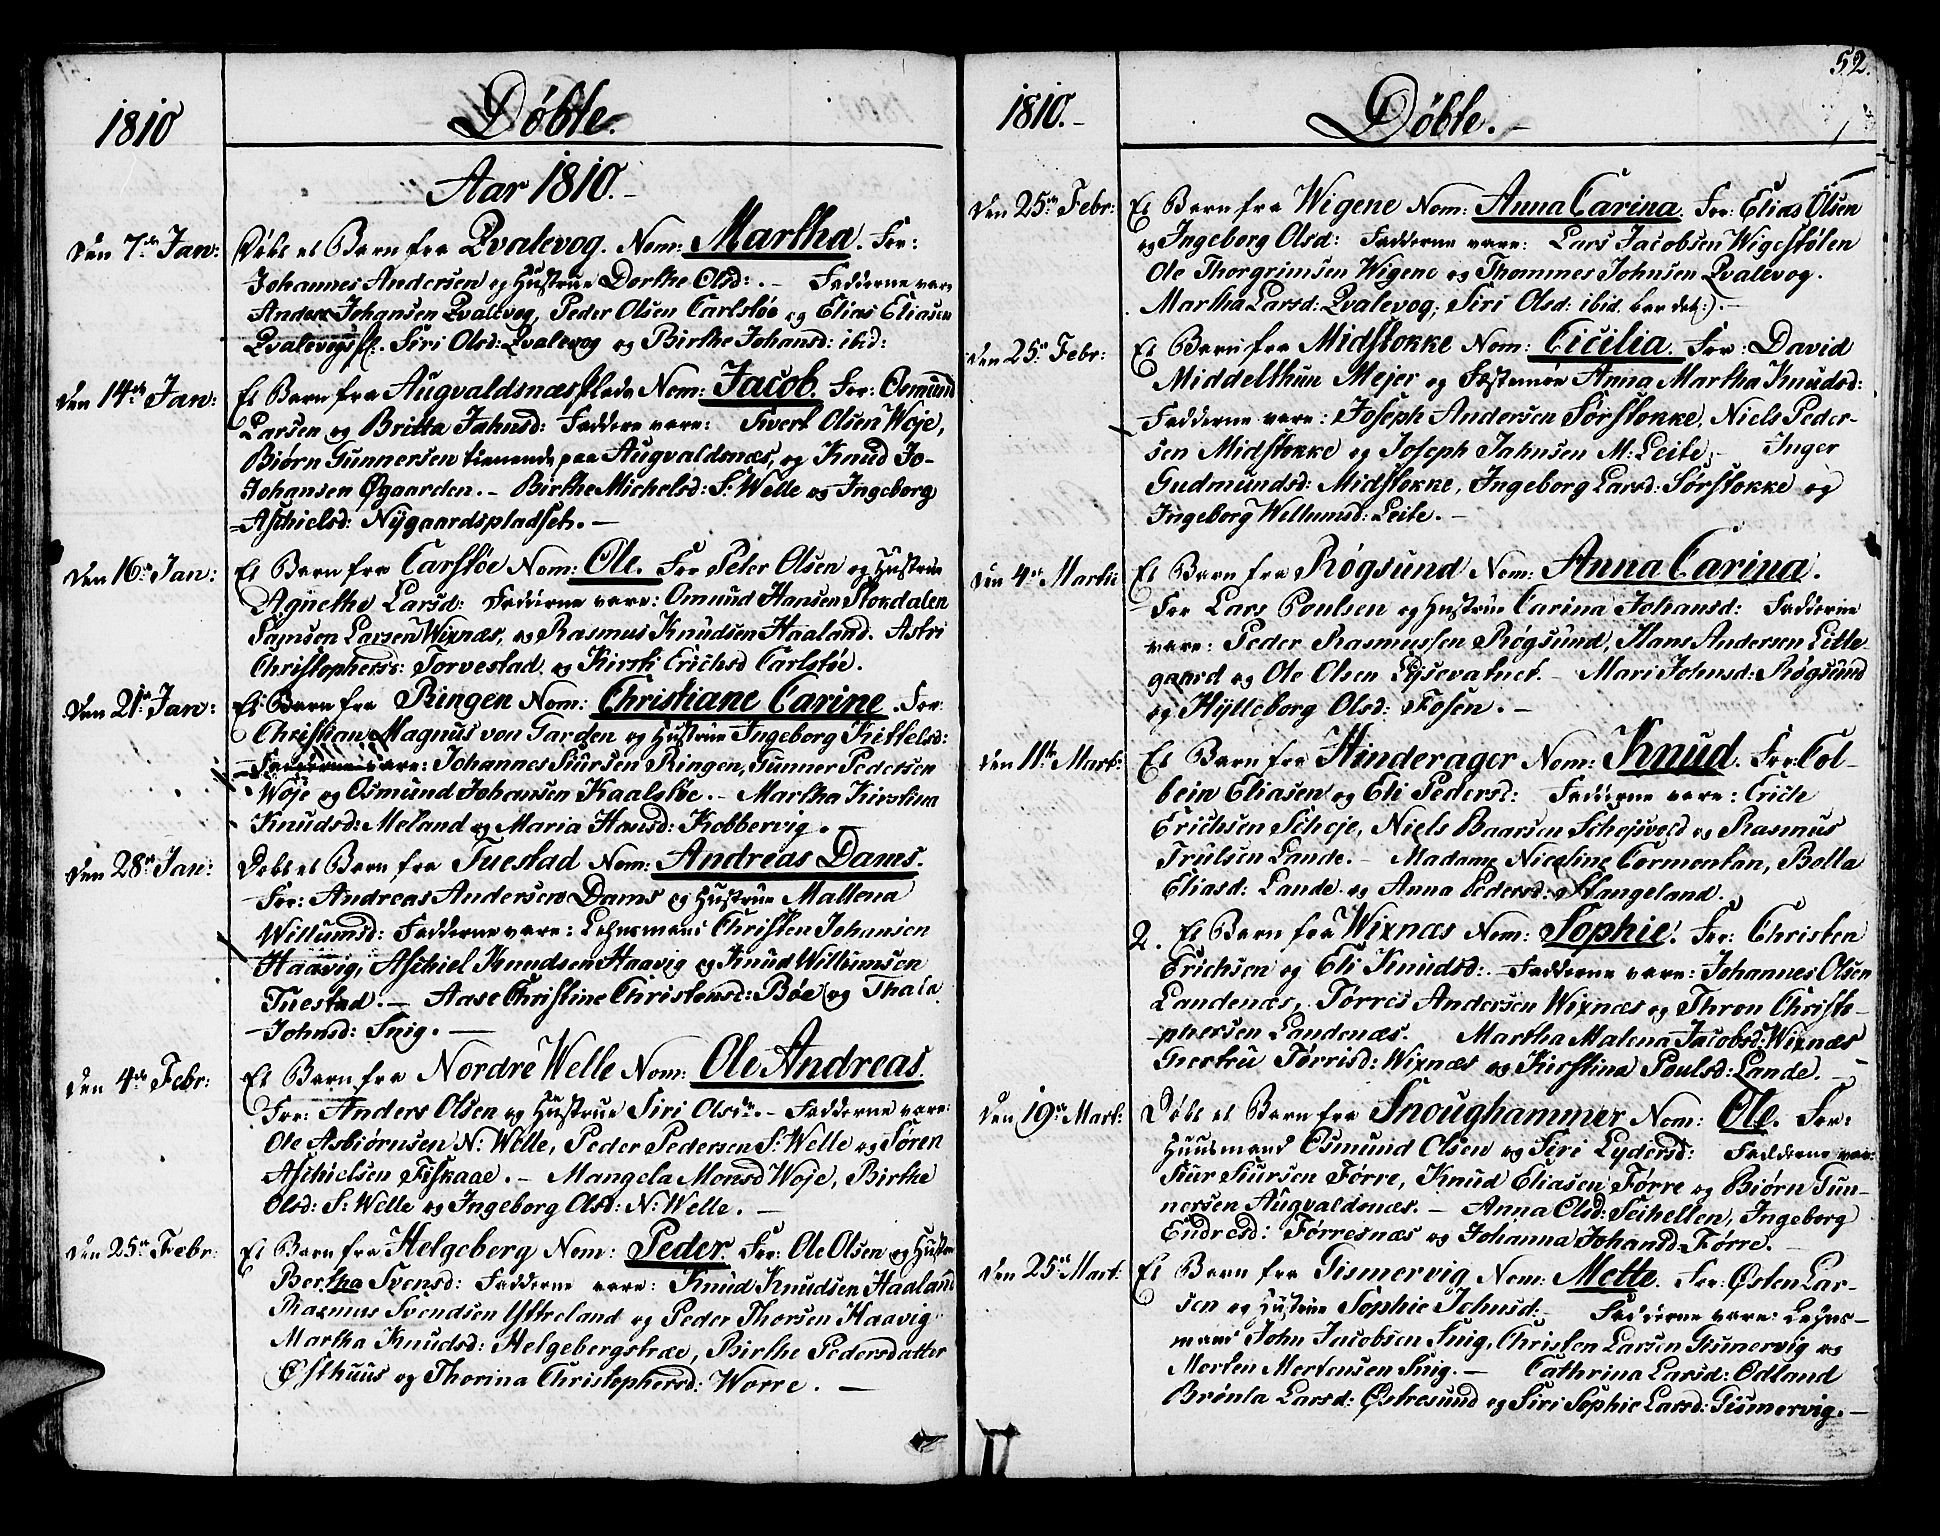 1810
Döbte.
Aar 1810.-
Den 7de Jan:
Döbt et Barn fra Qvalevog. Nom: Martha. For:
Johannes Andersen og Hustrue Dorthe Olsd:.- Fadderne vare
Anders Johansen Qvalevog, Peder Olsen Carlstöe og Elias Eliasen
Qvalevog. Siri Olsd: Qvalevog og Birthe Johansd: ibd:
Den 14de Jan:
Et Barn fra Augvaldsnæs Nom: Jacob. For: Osmund
Larsen og Britta Jahnsd: Faddere vare: Sivert Olsen Woje,
Biörn Gunnersen tienende paa Augvaldsnæs, og Knud Jo-
Johansen Øgaarden.- Birthe Michelsd: S: Welle og Ingeborg
Aschielsd: Nygaardspladset.-
Den 16de Jan:
Et Barn fra Carstöe Nom: Ole. For Peter Olsen og Hustrue
Agnethe Larsd: Fadderne vare: Omund Hansen Stokdalen
Samsen Larsen Wixnæs, og Rasmus Knudsen Haaland. Astri
Christophersd: Torvestad og Kirsti Erichsd Carlstöe.
Den 21de Jan:
Et Barn fra Ringen Nom: Christiane Carine. For:
Christian Magnus von Garden og Hustrue Ingeborg Kittelsd:
Fadderne vare: Johannes Siursen Ringen, Gunner Pedersen
Woje og Osmund Johansen Kaalstöe.- Martha Kirstina
Knudsd: Meland og Maria Hansd: Kobbervig.-
Den 28de Jan:
Döbt et Barn fra Tuestad Nom: Andreas Dams.
For: Andreas Andersen Dams og Hustrue Mallena
Willumsd: Fadderne vare: Lehnsmand Christen Johansen
Haavig, Aschiel Knudsen Haavig og Knud Willumsen
Tuestad.- Aase Christine Christensd: Böe og Thala
Johnsd: Snig.-
Den 4de Febr:
Et Barn fra Nordre Welle Nom: Ole Andreas.
For: Anders Olsen og Hustrue Siri Olsd:.- Fadderne vare:
Ole Asbiörnsen N: Welle, Peder Pedersen S: Welle og Sören
Aschielsen Fiskaae.- Mangela Monsd Woje, Birthe
Olsd: S: Welle og Ingeborg Olsd: N: Welle.-
Den 25de Febr:
Et Barn fra Helgeberg Nom: Peder. For: Ole Olsen og Hustrue
Bertha Svensd: Fadderne vare: Knud Knudsen Haaland
Rasmus Svendsen Ytreland og Peder Thorsen Haavig
Martha Knudsd: Helgebergstræe, Birthe Pedersdatter
Østhuus og Thorina Christophersd: Worre.-
52.
1810.-
Döbte.-
Den 25de Febr:
Et Barn fra Wigene Nom: Anna Carina. For: Elias Olsen
og Ingeborg Olsd: Fadderne vare: Lars Jacobsen Wigestölen
Ole Thorgrimsen Wigene og Thommes Johnsen Qvalevog.
Martha Larsd: Qvalevog; Siri Olsd: ibid. bar det:).-
Den 25de Febr:
Et Barn fra Midstokke Nom: Cicilia. For: David
Middelthun Mejer og Fæstemöe Anna Martha Knudsd:
Fadderne vare: Joseph Andersen Sörstokke, Niels Peder-
sen Midstokke og Joseph Jahnsen M: Leite,- Inger
Gudmundsd: Midstokke, Ingeborg Larsd: Sörstokke og
Ingeborg Wellumsd: Leite.-
Den 4de Martii
Et Barn fra Rögsund Nom: Anna Carina.
For Lars Poulsen og Hustrue Carina Johansd: Fadderne
vare: Peder Rasmussen Rögsund, Hans Andersen Lille
gaard og Ole Olsen Lysevatnet.- Mari Johnsd: Rögsund
og Hylleborg Olsd: Fosen.-
Den 11te Mart:
Et Barn fra Hinderager Nom: Knud. For: Col-
bein Eliasen og Eli Pedersd: Fadderne vare: Erich
Erichsen Scheje, Niels Baarsen Schejsvold og Rasmus
Trulsen Lande.- Madame Nicoline Cormentan, Bolla
Eliasd: Lande og Anna Pedersd: Stangeland.
2. Et Barn fra Wixnæs Nom: Sophie. For: Christen
Erichsen og Eli Knudsd:- Fadderne vare: Johannes Olsen
Landenæs, Törres Andersen Wixnæs og Thron Christo-
phersen Landenæs. Martha Malena Jacobsd: Wixnæs
Giertru Törrisd: Wixnæs og Kirstina Poulsd: Lande.-
Den 19de Mart:
Döbt et Barn fra Snoughammer Nom: Ole. For:
Huusmand Osmund Olsen og Siri Lydersd: Fadderne var:
Siur Siursen Förre, Knud Eliasen Förre og Biörn Gun-
nersen Augvaldsnæs.- Anna Olsd: Seihellen, Ingeborg
Endresd: Förresnæs og Johanna Johansd: Förre.-
Den 25de Mart:
Et Barn fra Gismervig Nom: Mette. For: Østen Lar-
sen og Hustrue Sophie Johnsd:- Fadderne vare: Lehns-
mand John Jacobsen Snig, Christen Larsen Gismervig og
Morten Mortensen Snig.- Cathrina Larsd: Odland
Brönla Larsd: Østresund og Siri Sophie Larsd: Gismervig.-